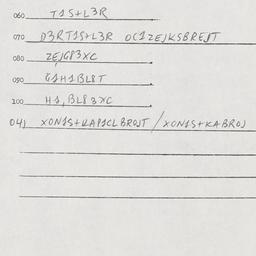 060 T1S+L3R
070 D3RT1S+L3R OC1ZEJKSBREJT
080 ZEJGP3XC
090 G1H1BL8T
100 H1,BL83XC
04) XON1S+KAP1CLBROJT/XON1S+KABROJ